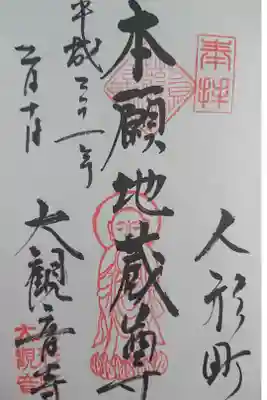 奉拝
人形町
本願地蔵尊
大観音寺
平成二十一年
二月十日
大観音